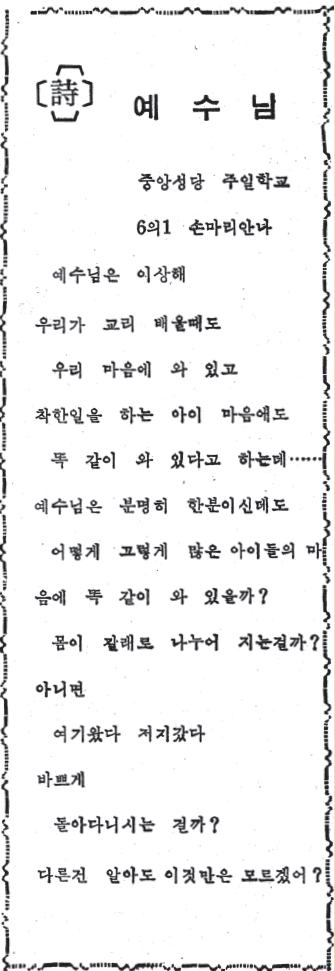 [詩] 예수님
중앙성당 주일학교
6의1 손마리안나
예수님은 이상해
우리가 교리 배울때도
우리 마음에 와 있고
착한일을 하는 아이 마음에도
똑 같이 와 있다고 하는데……
예수님은 분명히 한분이신데도
어떻게 그렇게 많은 아이들의 마
음에 똑 같이 와 있을까?
몸이 갈래로 나누어 지는걸까?
아니면
여기왔다 저지갔다
바쁘게
돌아다니시는 걸까?
다른건 알아도 이것만은 모르겠어?